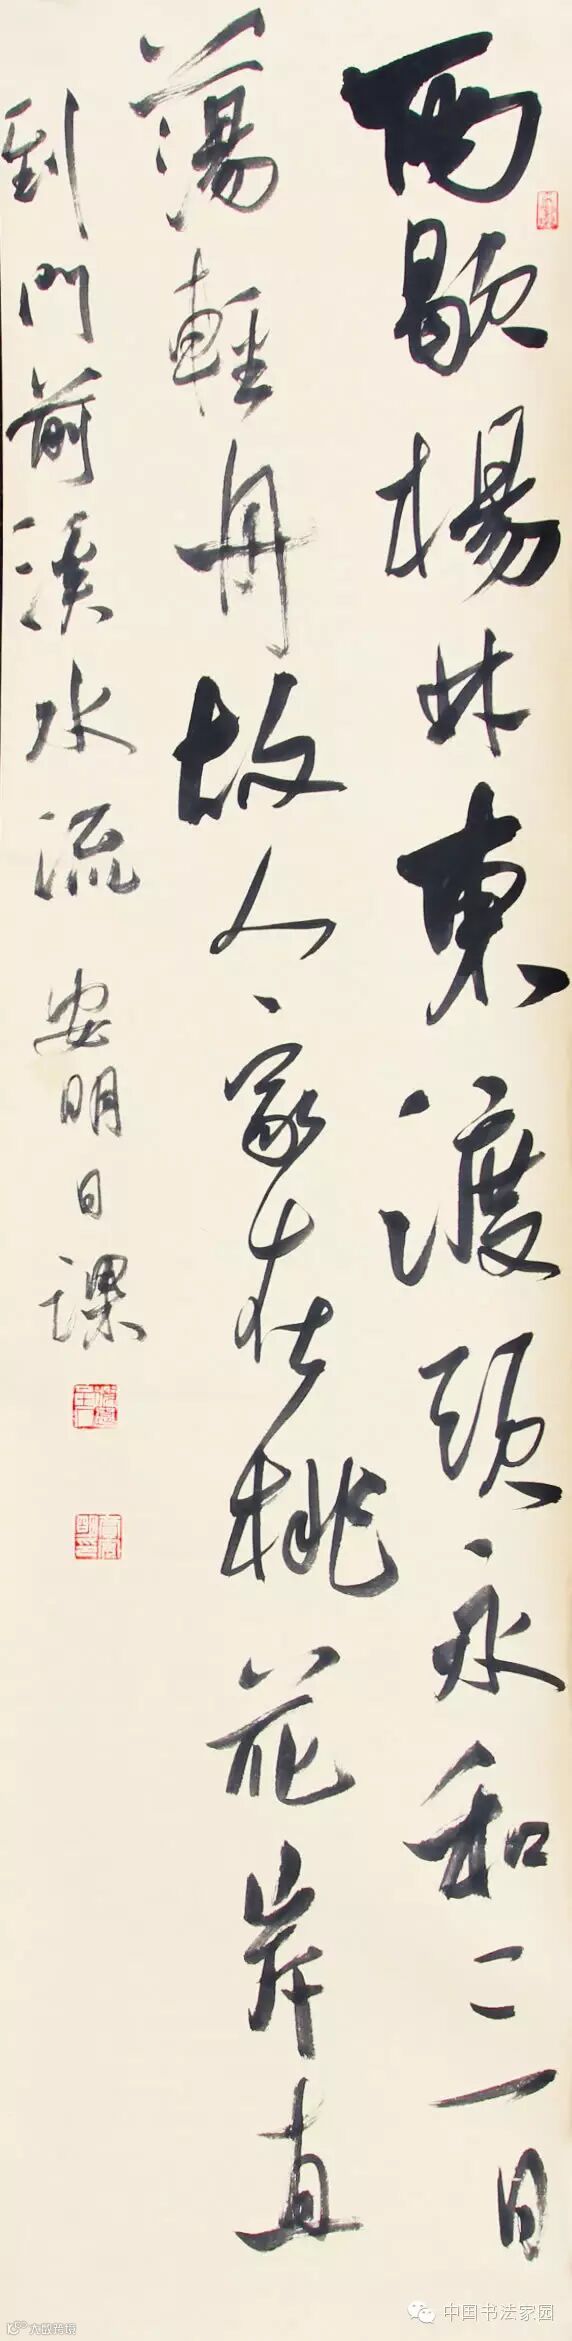 雨歇楊林東渡頭永和三日
蕩輕舟故人家在桃花岸直
到門前溪水流 安明日課
中国书法家园